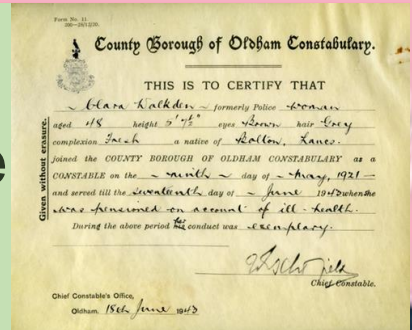 Form No. 11
County Borough of Oldham Constabulary.
THIS IS TO CERTIFY THAT
Clara Walkden formerly Police woman
aged 48 height 5' 7½" eyes Brown hair Grey
complexion Fresh a native of Bolton, Lancs.
joined the COUNTY BOROUGH OF OLDHAM CONSTABULARY as a
CONSTABLE on the ninth day of May, 1921
and served till the seventeenth day of June 1943 when she
was pensioned on account of ill-health.
During the above period her conduct was exemplary.
Chief Constable.
Chief Constable's Office,
Oldham, 18th June 1943
Given without erasure.
e